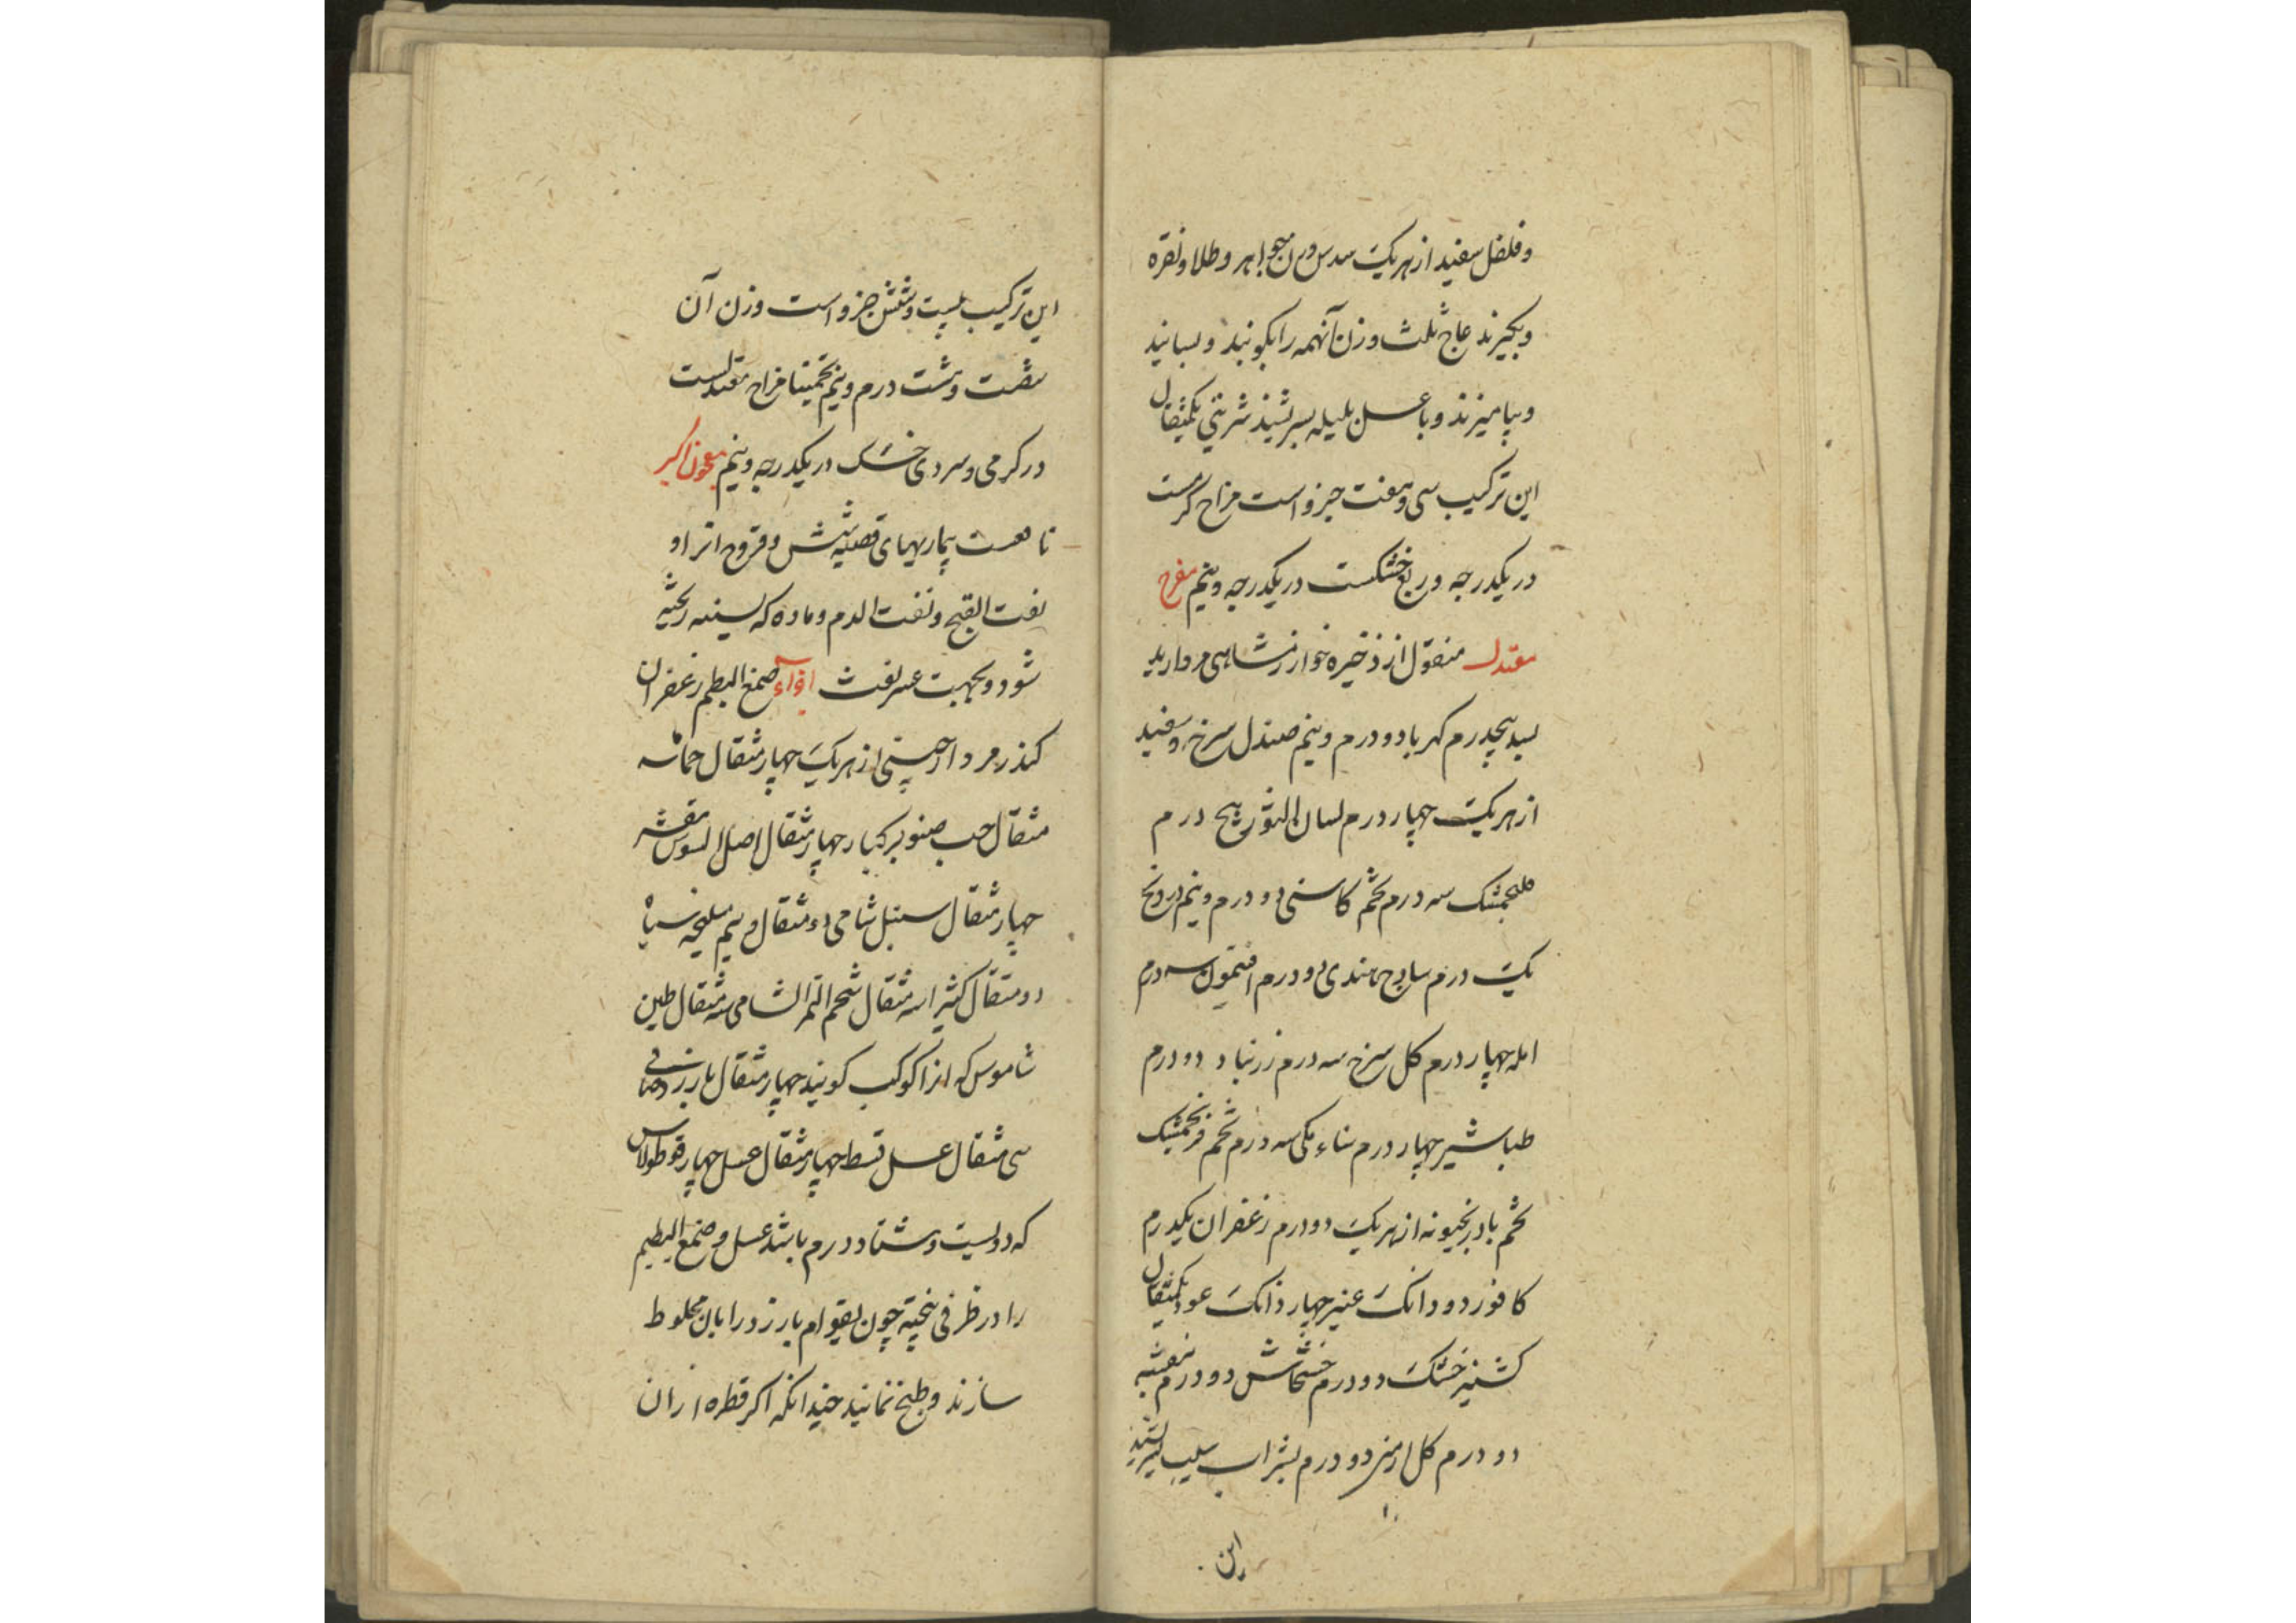 وفلفل سفید از هریک سدس وزن جواهر و طلا و نقره
وبکیرند عاج ثلث وزن آنهمه را بکوبند و بسایند
وبیامیزند و با عسل هلیله بسرشند شربتی یکمثقال
این ترکیب سی وهفت جزو است مزاج گرمست
در یکدرجه و ربع خشکست در یکدرجه ونیم مفرح
معتدل منقول از ذخیره خوارزمشاهی مروارید
بسد پنجدرم کهربا دو درم ونیم صندل سرخ وسفید
از هریک چهار درم لسان الثور پنج درم
فلنجمشک سه درم تخم کاسنی دو درم ونیم درونج
یک درم سادج هندی دو درم افتیمون سه درم
امله چهار درم کل سرخ سه درم زرنباد دو درم
طباشیر چهار درم سناء مکی سه درم تخم فرنجمشک
تخم بادرنجبویه از هریک دو درم زعفران یکدرم
کافور دو دانک عنبر چهار دانک عود یکمثقال
کشنیز خشک دو درم خشخاش دو درم بنفشه
دو درم کل ارمنی دو درم بشراب سیب بسرشند
این
این ترکیب بیست وشش جزو است وزن آن
شصت وهشت درم ونیم تخمینا مزاج معتدلست
در کرمی وسردی خشک در یکدرجه ونیم معجون اکبر
نافعست بیماریهای قصبه شش و قروح اترا و
نفث القیح ونفث الدم وماده که بسینه ریخته
شود وبجهت عسر نفث اجزاء صمغ البطم زعفران
کندر مر دارچینی از هریک چهار مثقال حماما سه
مثقال حب صنوبر کبار چهار مثقال اصل السوس مقشر
چهار مثقال سنبل شامی دو مثقال و نیم سلیخه سیاه
دو مثقال کثیرا سه مثقال شحم التمر الشامی سه مثقال طین
شاموس که انرا کوکب کویند چهار مثقال بارزد صافی
سی مثقال عسل قسط چهار مثقال عسل چهار قوطولاس
که دویست وهشتاد درم باشد عسل و صمغ البطم
را در ظرفی پخته چون بقوام بارزد را بان مخلوط
سازند و طبخ نمایند چندانکه اکر قطره از ان